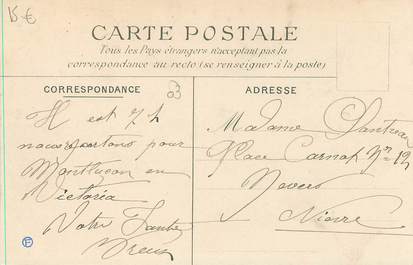 15 €
CARTE POSTALE
Tous les Pays étrangers n'acceptant pas la
correspondance au recto (se renseigner à la poste)
CORRESPONDANCE
83
Il est 7 h
nous partons pour
Montluçon en
Victoria
Votre
ADRESSE
Madame
Place Carnot Nº 12
Nevers
Nièvre